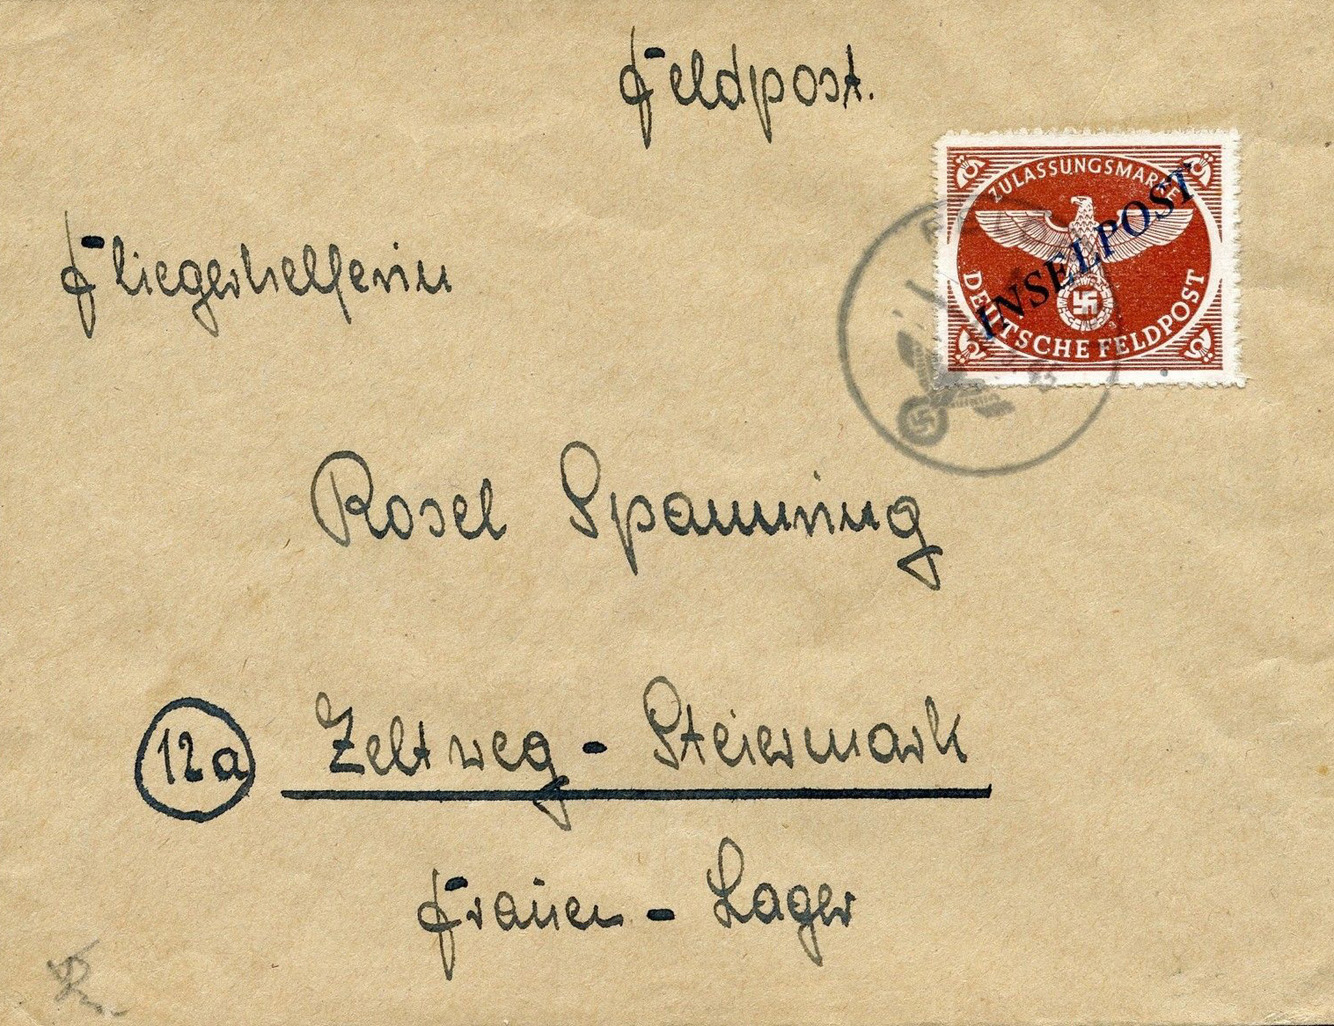 Feldpost.
ZULASSUNGSMARKE
INSELPOST
DEUTSCHE FELDPOST
Fliegerhelferin
Rosel Spannring
12a Zeltweg - Steiermark
Frauen - Lager